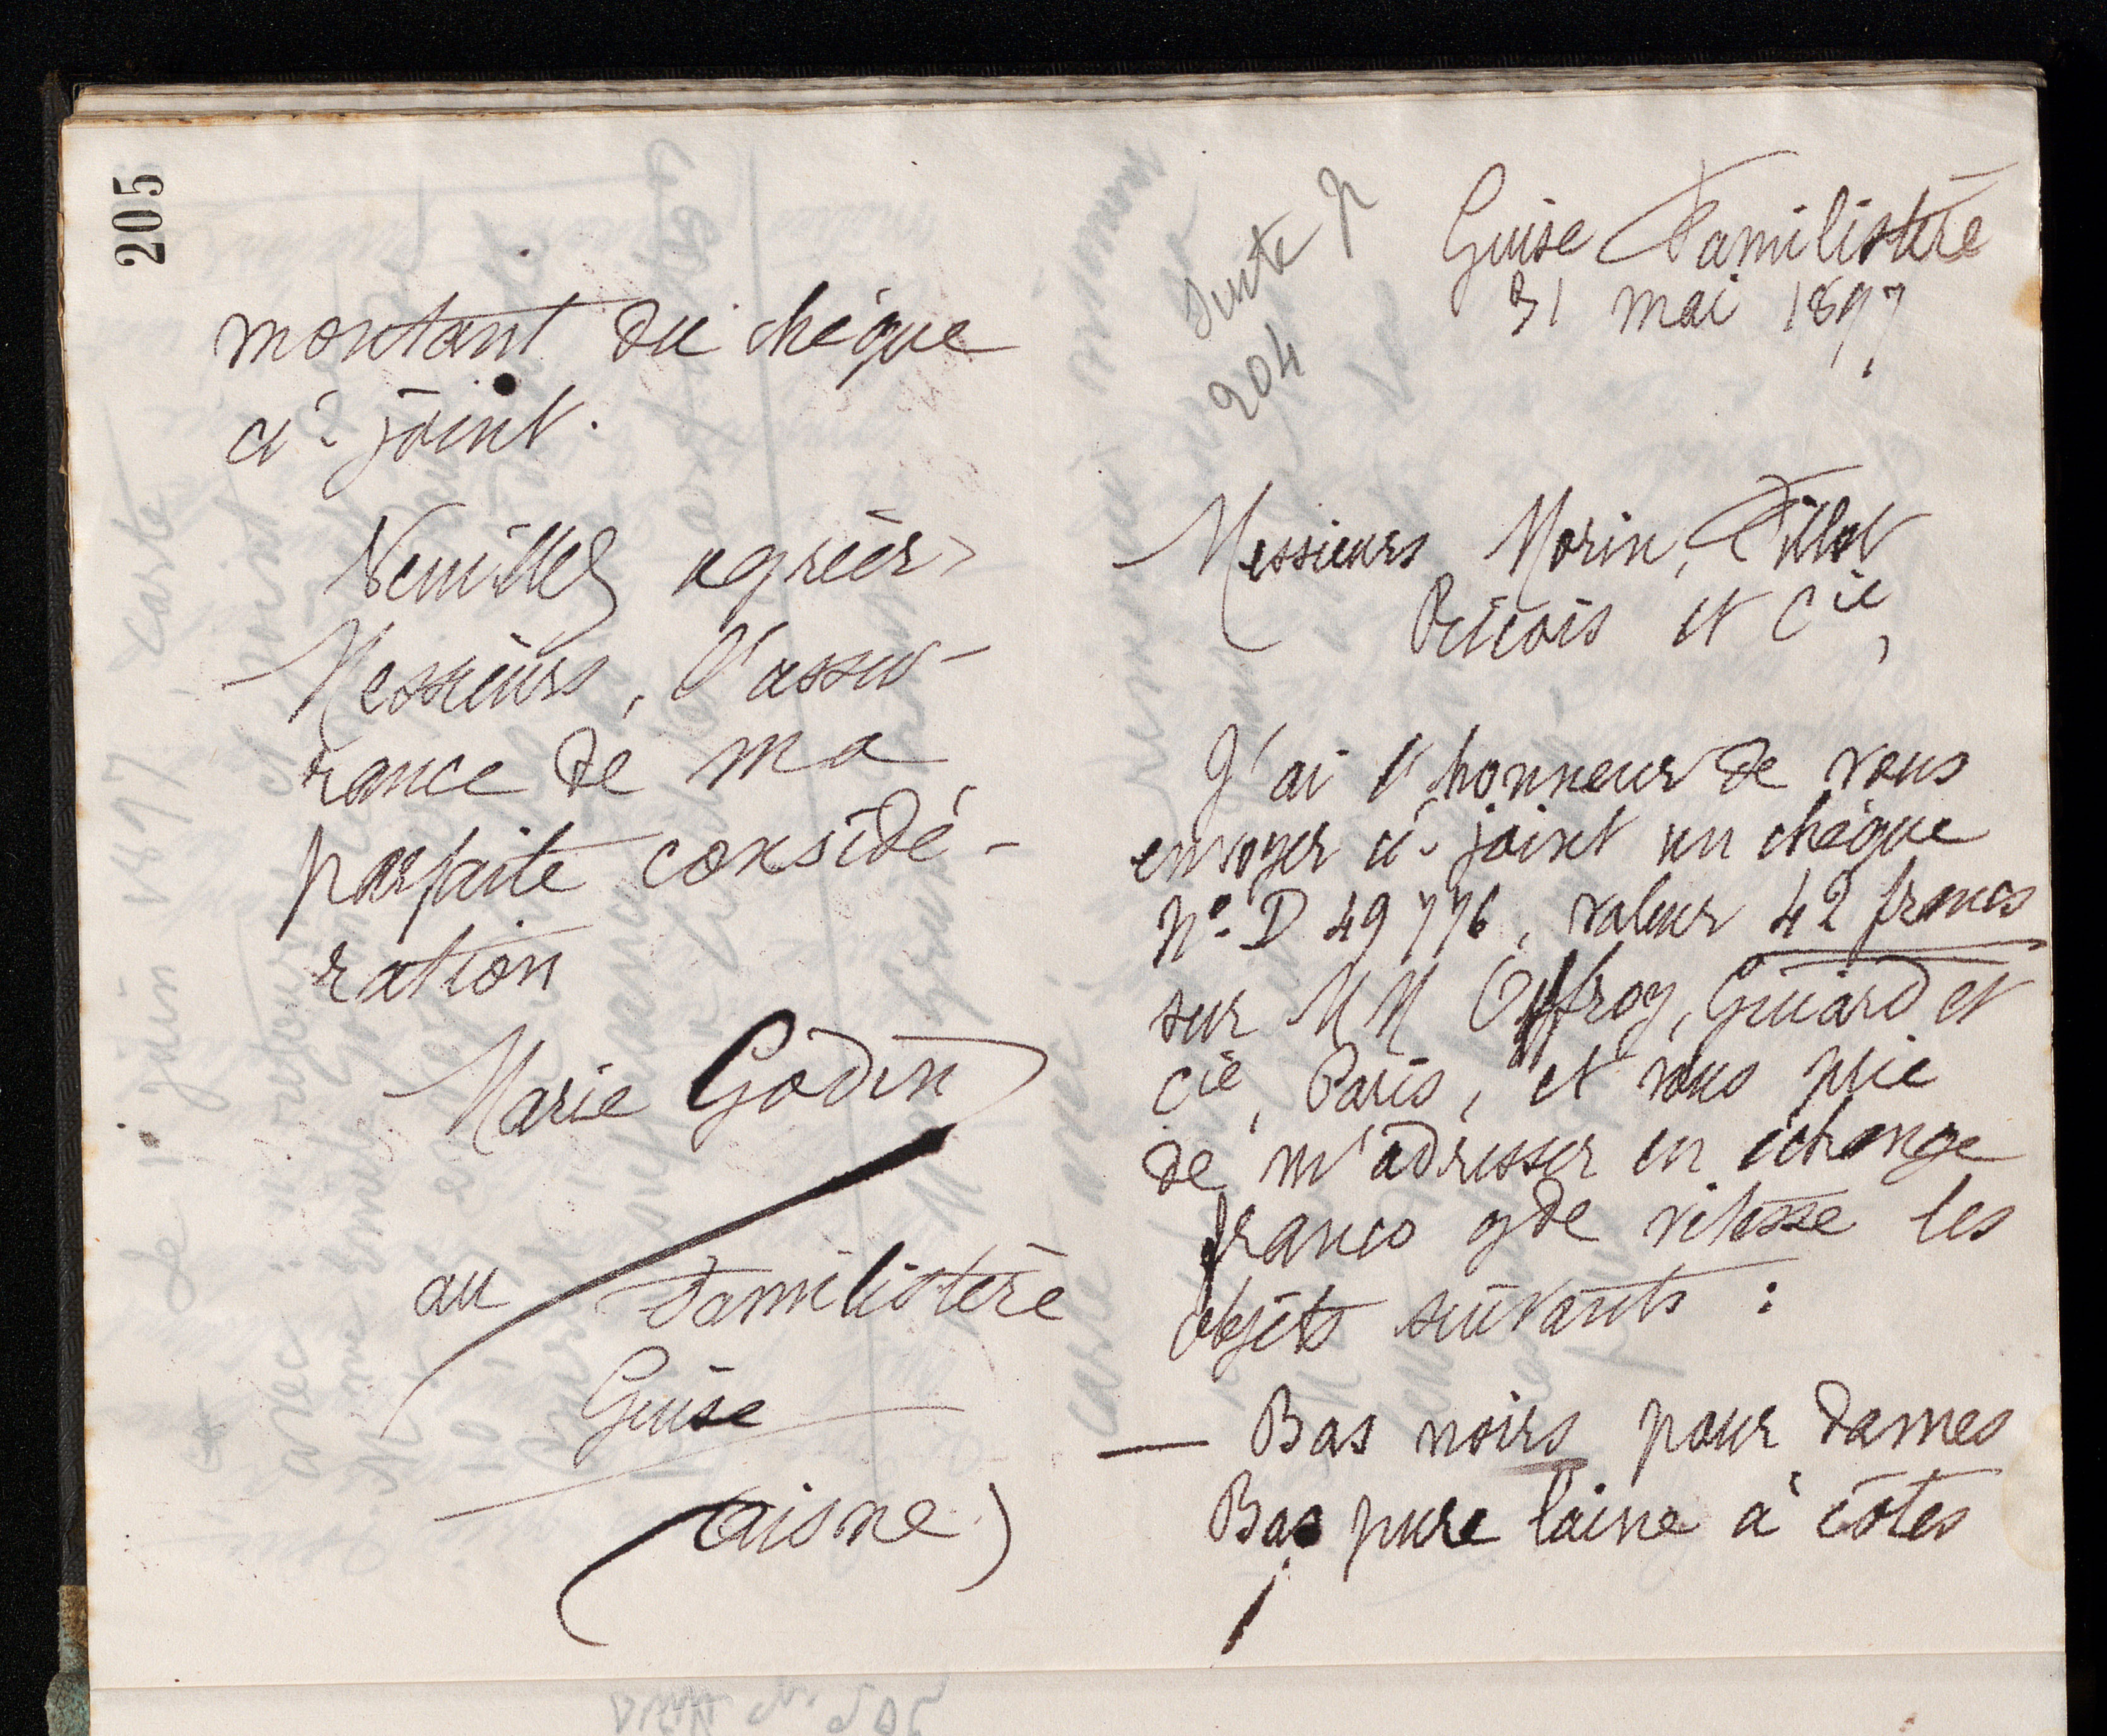 205
montant du chèque
ci-joint.
Veuillez agréer,
Messieurs, l'assu-
rance de ma
parfaite considé-
ration
Marie Godin
au Familistère
Guise
(Aisne)
Suite p
204
Guise Familistère
31 mai 1897
Messieurs Morin, Fillot
Ricois et Cie,
J'ai l'honneur de vous
envoyer ci-joint un chèque
No D 49776, valeur 42 francs
sur MM Offroy, Guiard et
Cie, Paris, et vous prie
de m'adresser en échange
franco gde vitesse les
objets suivants :
— Bas noirs pour dames
Bas pure laine à côtes